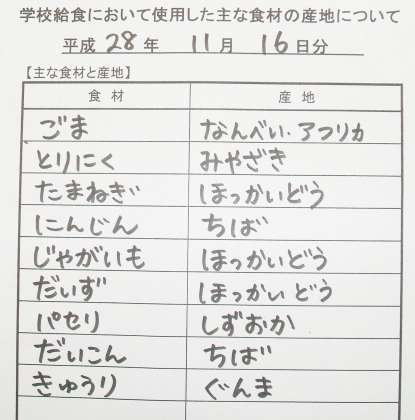 学校給食において使用した主な食材の産地について
平成 28 年 11 月 16 日分
【主な食材と産地】
食材 産地
ごま なんべい・アフリカ
とりにく みやざき
たまねぎ ほっかいどう
にんじん ちば
じゃがいも ほっかいどう
だいず ほっかいどう
パセリ しずおか
だいこん ちば
きゅうり ぐんま